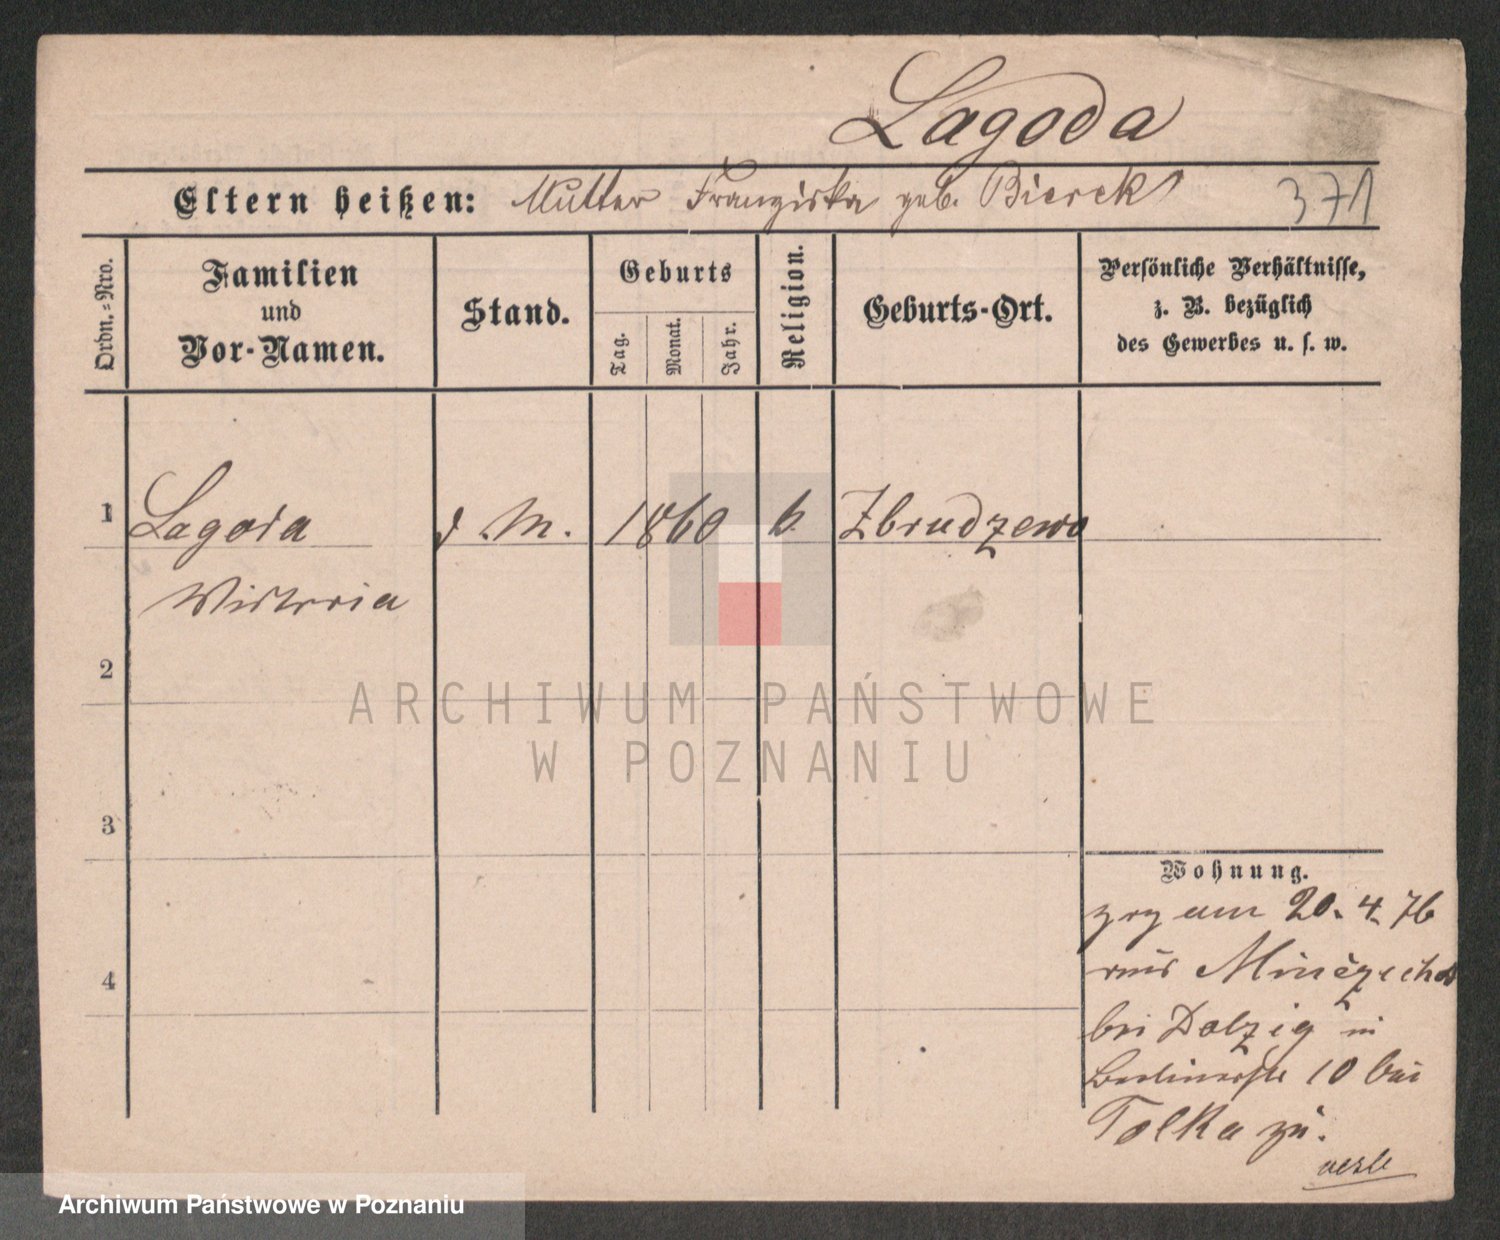 Lagoda
Eltern heißen: Mutter Franziska geb. Bierek
371
Ordn.-Nro.
Familien
und
Vor-Namen.
Stand.
Geburts
Tag.
Monat.
Jahr.
Religion.
Geburts-Ort.
Persönliche Verhältnisse,
z. B. bezüglich
des Gewerbes u. s. w.
1
Lagoda
d. M.
1860
k
Zbrudzewo
Victoria
2
3
4
ARCHIWUM PAŃSTWOWE
W POZNANIU
Wohnung.
zog am 20. 4. 76
aus
bei Dolzig in
Berlinerstr 10 bei
Tolka zu.
Archiwum Państwowe w Poznaniu